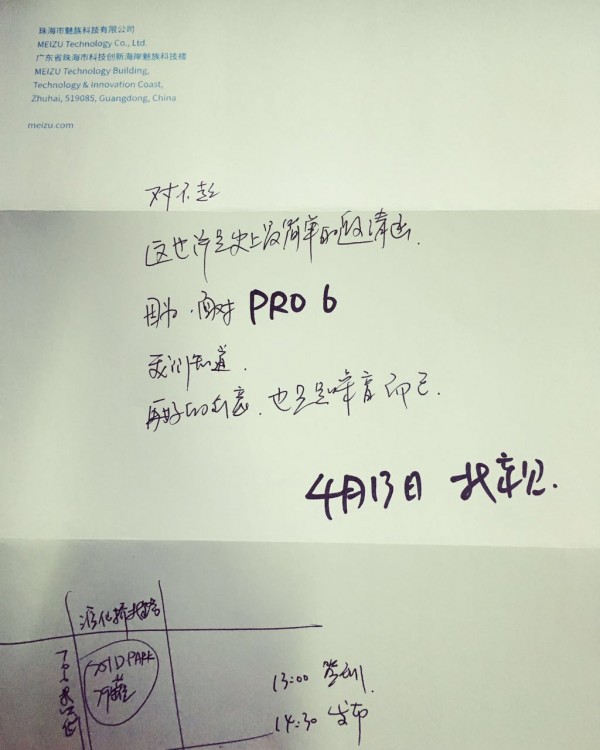 珠海市魅族科技有限公司
MEIZU Technology Co., Ltd.
广东省珠海市科技创新海岸魅族科技楼
MEIZU Technology Building,
Technology & Innovation Coast,
Zhuhai, 519085, Guangdong, China
meizu.com
对不起
这也许是史上最简单的邀请函.
因为.面对 PRO 6
我们知道.
再好的创意.也只是噪音而已.
4月13日 北京见.
PARK
13:00 签到.
14:30 发布